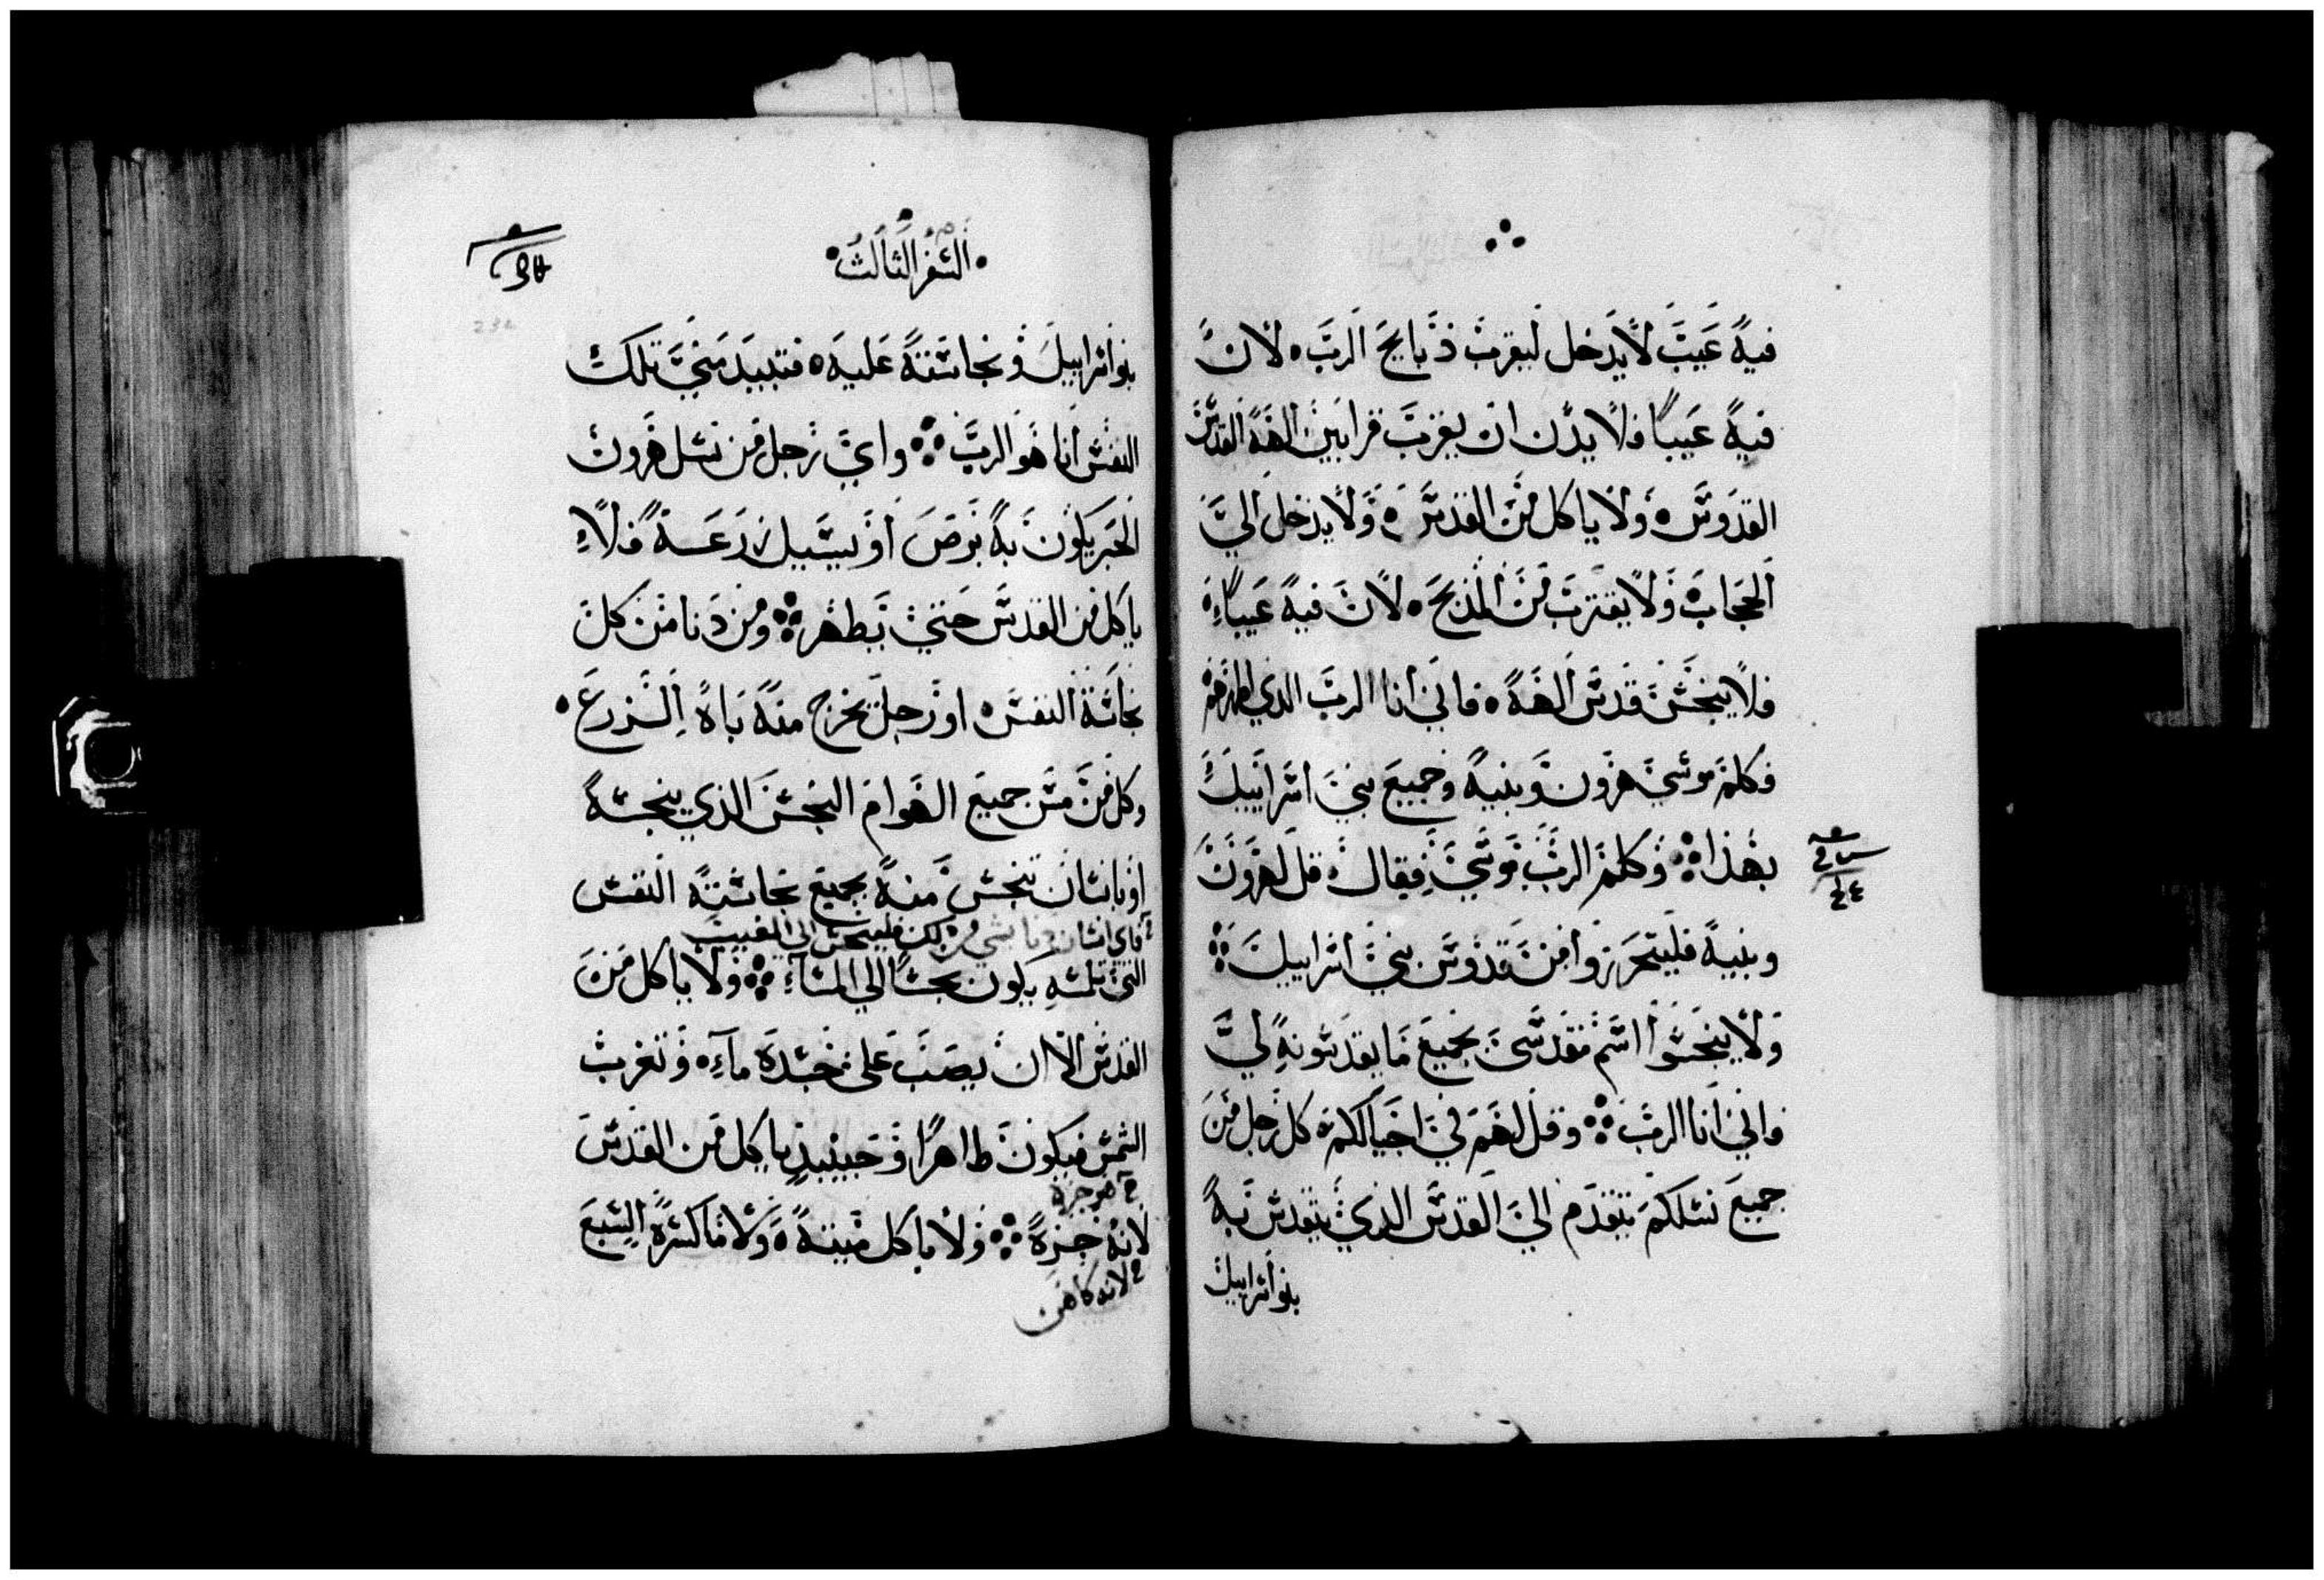 فيه عيب لا يدخل ليقرب ذبايح الرب لان
فيه عيباً فلا يدن ان يقرب قرابين الهه القدس
القدوس ولا ياكل من القدس ولا يدخل الي
الحجاب ولا يقترب من المذبح لان فيه عيباً
فلا ينجس قدس الهه فاني انا الرب الذي اطهرهم
فكلم موسي هرون وبنيه وجميع بني اسراييل
بهذا وكلم الرب موسي فقال قل لهرون
وبنيه فليتحرزوا من قدوس بني اسراييل
ولا ينجسوا اسم تقدسي بجميع ما يقدسونه لي
فاني انا الرب وقل لهم في احيالكم كل رجل من
جميع نسلكم يتقدم الي القدس الذي يتقدس به
بنو اسراييل
السفر الثالث
بنو اسراييل ونجاسته عليه فتبيد مني تلك
النفس انا هو الرب واي رجل من نسل هرون
الحبر يكون به برص او يسيل زرعه فلا
ياكل من القدس حتي يطهر ومن دنا من كل
نجاسة النفس او رجل يخرج منه ماه الزرع
وكل من مس جميع الهوام النجس الذي ينجسه
او بانسان تنجس منه بجميع نجاسته النفس
فاي انسان دنا بشي من ذلك فليتنجس الي المغيب
التي تلمسه يكون نجساً الي المساء ولا ياكل من
القدس الا ان يصب على جسده ماء وتغرب
الشمس فيكون طاهراً وحينيذ ياكل من القدس
هو جزه
لانه جزه ولا ياكل ميتة ولا ماكسرة السبع
لانه كاهن